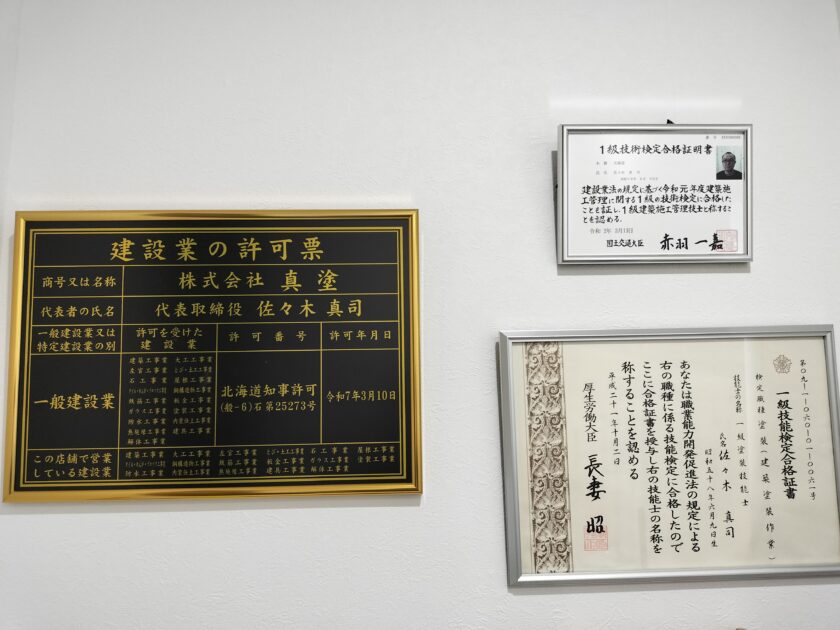 建設業の許可票
商号又は名称
株式会社 真塗
代表者の氏名
代表取締役 佐々木真司
一般建設業又は
特定建設業の別
許可を受けた
建設業
許可番号
許可年月日
一般建設業
建築工事業 大工工事業
左官工事業 とび・土工工事業
石工事業 屋根工事業
タイル・れんが・ブロック工事業 鋼構造物工事業
鉄筋工事業 板金工事業
ガラス工事業 塗装工事業
防水工事業 内装仕上工事業
熱絶縁工事業 建具工事業
解体工事業
北海道知事許可
(般-6)石第25273号
令和7年3月10日
この店舗で営業
している建設業
建築工事業 大工工事業 左官工事業 とび・土工工事業 石工事業 屋根工事業
タイル・れんが・ブロック工事業 鋼構造物工事業 鉄筋工事業 板金工事業 ガラス工事業 塗装工事業
防水工事業 内装仕上工事業 熱絶縁工事業 建具工事業 解体工事業
1級技術検定合格証明書
建設業法の規定に基づく令和元年度建築施
工管理に関する1級の技術検定に合格した
ことを証し、1級建築施工管理技士と称するこ
とを認める。
令和2年3月13日
国土交通大臣 赤羽一嘉
第〇九-一-〇六〇-〇一-〇〇六一号
一級技能検定合格証書
検定職種 塗装(建築塗装作業)
技能士の名称 一級塗装技能士
氏名 佐々木 真司
昭和五十八年六月九日生
あなたは職業能力開発促進法の規定による
右の職種に係る技能検定に合格したので
ここに合格証書を授与し右の技能士の名称を
称することを認める
平成二十一年十月二日
厚生労働大臣 長妻 昭